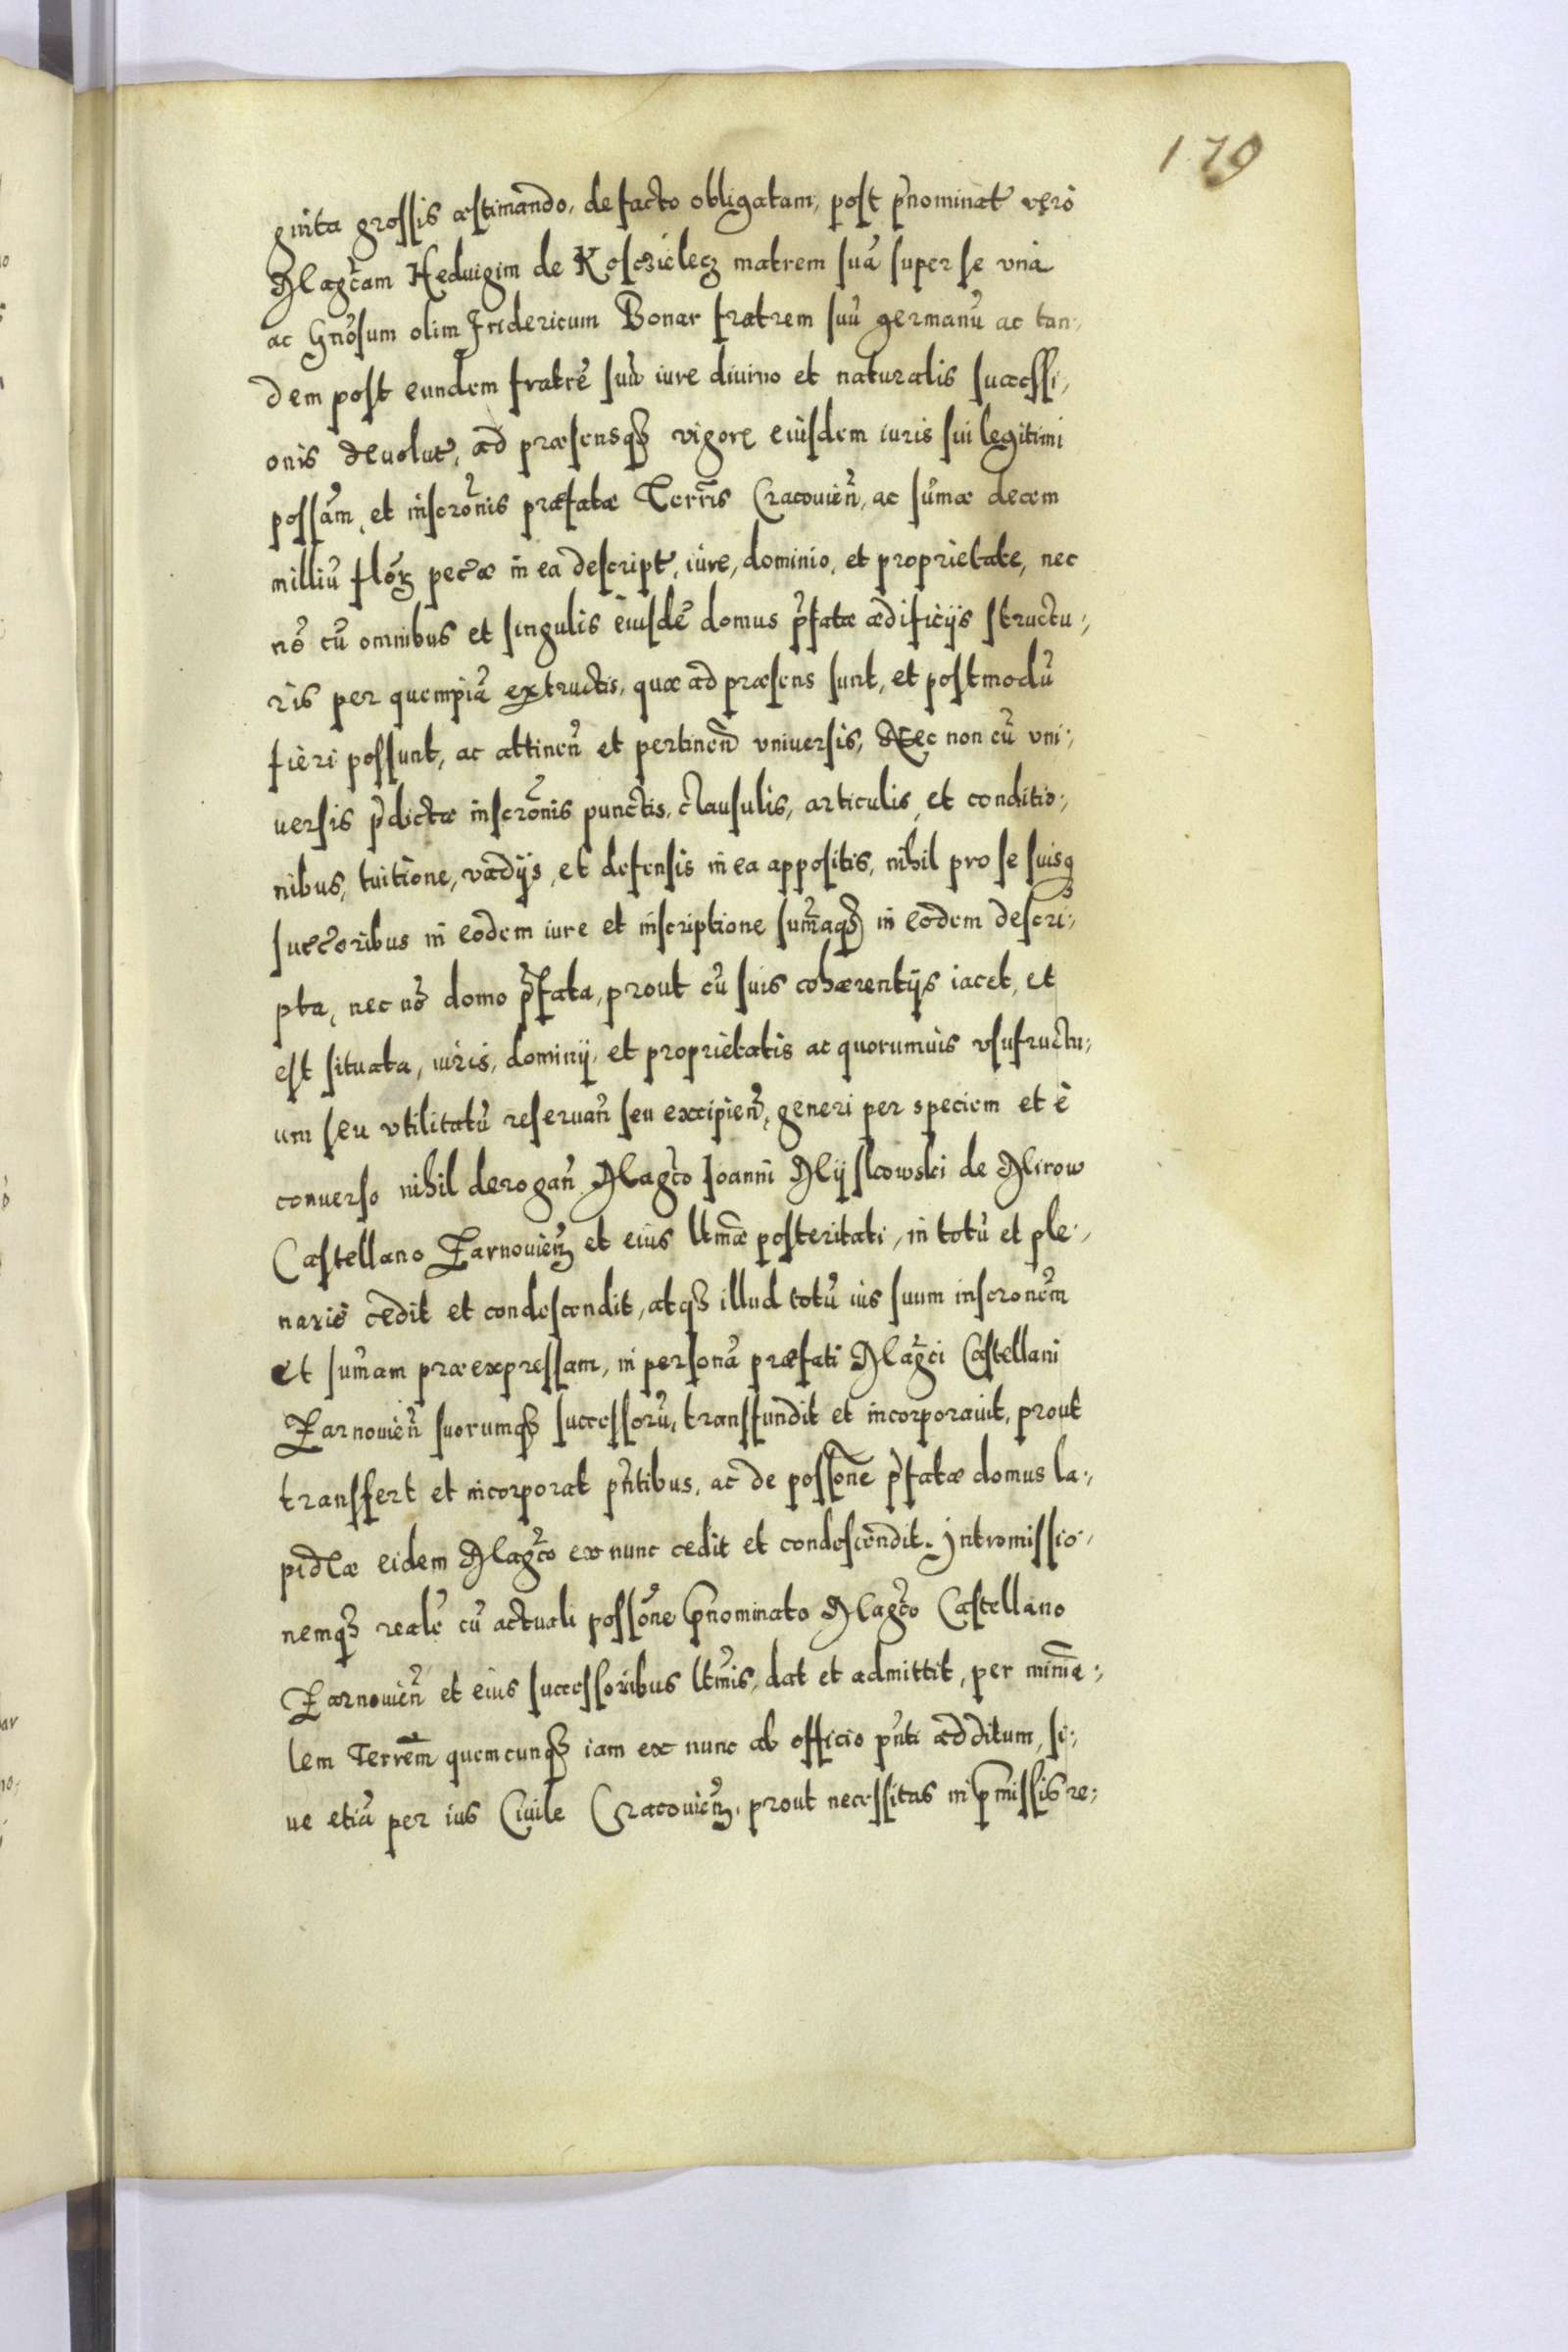 179
ginta grossis æstimando, de facto obligatam, post p̃nominat̃ verò
Mag̃cam Heduigim de Kosczielecz matrem suã super se unà
ac Gñosum olim Fridericum Bonar fratrem suũ germanũ ac tan-
dem post eundem fratrẽ suũ iure diuino et naturalis successi-
onis deuolut̃, ad præsensq3 vigore eiusdem iuris sui legitimi
possam̃, et inscrõnis præfatæ Terrĩs Cracovieñ, ac sum̃æ decem
milliũ flõ3 pec̃æ in ea descript̃, iure, dominio, et proprietate, nec
nõ cũ omnibus et singulis eiusdẽ domus p̃fatæ ædificijs structu-
ris per quempiã extructis, quæ ad præsens sunt, et postmodũ
fieri possunt, ac attineñ et pertineñ vniuersis, Nec non cũ vni-
uersis p̃dictæ inscrõnis punctis, clausulis, articulis, et conditio-
nibus, tuitione, vadijs, et defensis in ea appositis, nihil pro se suisq3
succ̃oribus in eodem iure et inscriptione sum̃aq3 in eodem descri-
pta, nec nõ domo p̃fata, prout cũ suis cohærentijs iacet, et
est situata, iuris, dominij, et proprietatis ac quorumuis vsufructu-
um seu vtilitatũ reseruañ seu excipieñ, generi per speciem et è
conuerso nihil derogañ Mag̃co Joanni Mijslcowski de Mirow
Castellano Zarnovieñ et eius ltm̃æ posteritati, in totũ et ple-
nariè cedit et condescendit, atq3 illud totũ ius suum inscronẽm
et sum̃am præexpressam, in personã præfati Mag̃ci Castellani
Zarnovieñ suorumq3 successorũ, transfundit et incorporauit, prout
transfert et incorporat p̃ntibus, ac de possõne p̃fatæ domus la-
pid̃eæ eidem Mag̃co ex nunc cedit et condescendit. Intromissio-
nemq3 realẽ cũ actuali possõne p̃nominato Mag̃co Castellano
Zarnovieñ et eius successoribus ltm̃is, dat et admittit, per minĩa-
lem Terrẽm quemcunq3 iam ex nunc ab officio p̃nti additum, si-
ue etiã per ius Ciuile Cracovieñ, prout necessitas in p̃missis re-